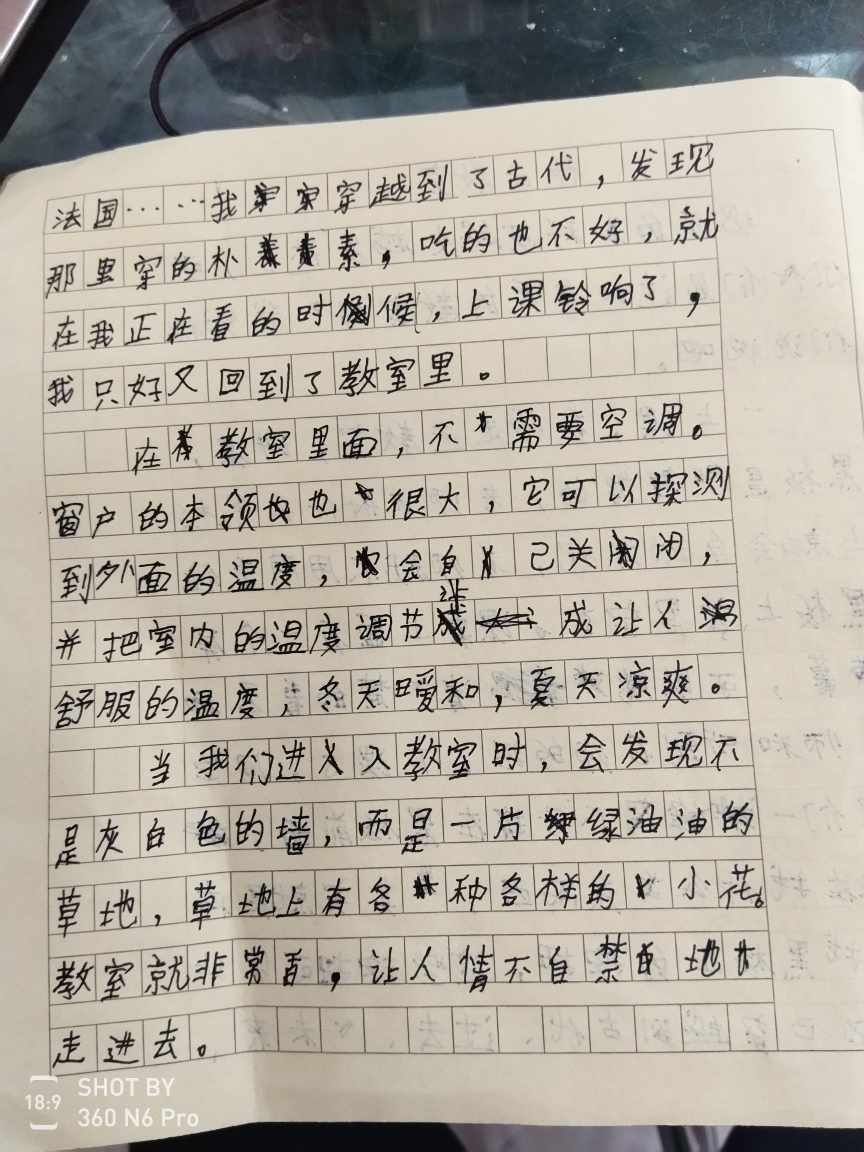 法国……我穿越到了古代，发现
那里穿的朴素，吃的也不好，就
在我正在看的时候，上课铃响了，
我只好又回到了教室里。
在教室里面，不需要空调。
窗户的本领也很大，它可以探测
到外面的温度，会自己关闭，
并把室内的温度调节成让人
舒服的温度，冬天暖和，夏天凉爽。
当我们进入教室时，会发现不
是灰白色的墙，而是一片绿油油的
草地，草地上有各种各样的小花。
教室就非常香，让人情不自禁地
走进去。
18:9
SHOT BY
360 N6 Pro